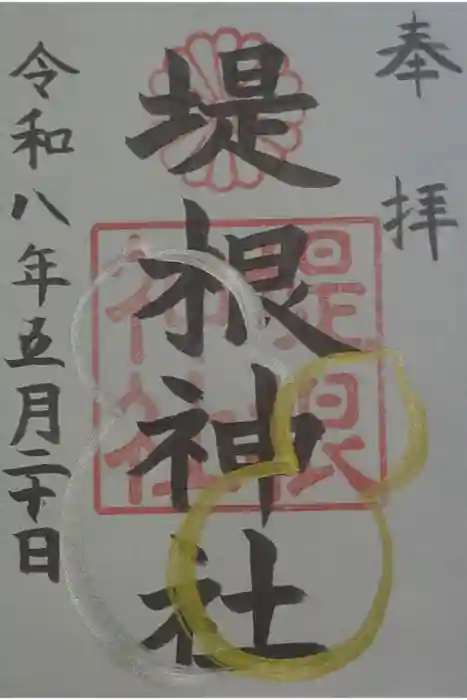 奉拝
堤根神社
堤根
神社
令和八年五月二十日